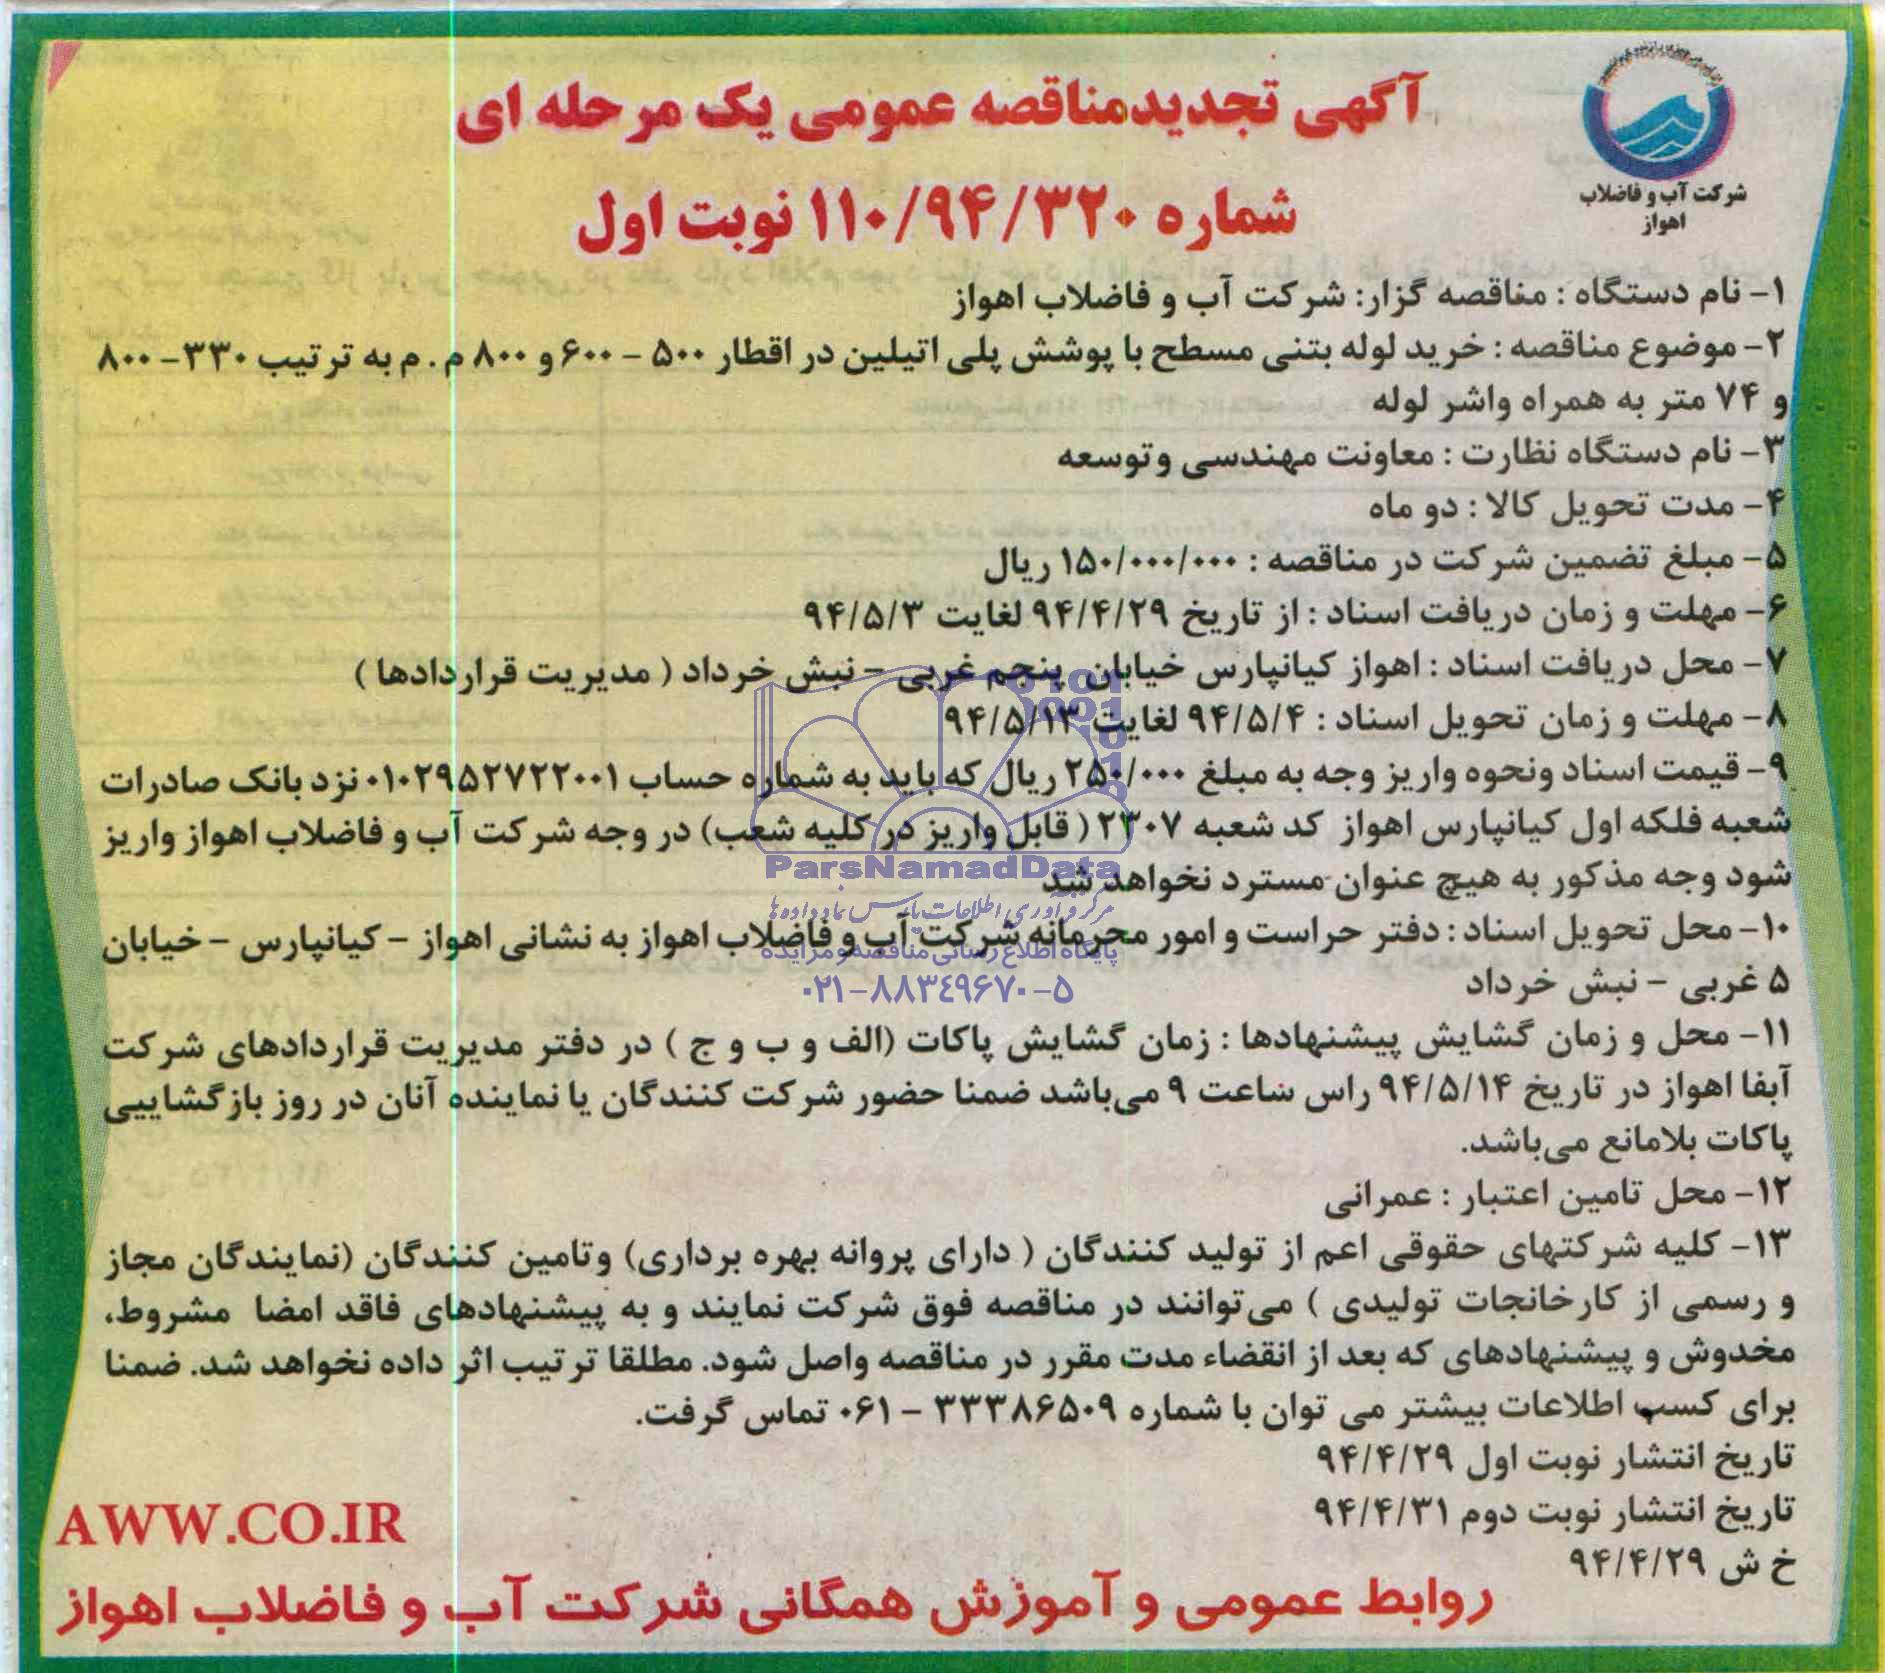 شرکت آب و فاضلاب
اهواز
آگهی تجدیدمناقصه عمومی یک مرحله ای
شماره ۱۱۰/۹۴/۳۲۰ نوبت اول
۱- نام دستگاه : مناقصه گزار: شرکت آب و فاضلاب اهواز
۲- موضوع مناقصه : خرید لوله بتنی مسطح با پوشش پلی اتیلین در اقطار ۵۰۰ - ۶۰۰ و ۸۰۰ م . م به ترتیب ۳۳۰- ۸۰۰
و ۷۴ متر به همراه واشر لوله
۳- نام دستگاه نظارت : معاونت مهندسی وتوسعه
۴- مدت تحویل کالا : دو ماه
۵- مبلغ تضمین شرکت در مناقصه : ۱۵۰/۰۰۰/۰۰۰ ریال
۶- مهلت و زمان دریافت اسناد : از تاریخ ۹۴/۴/۲۹ لغایت ۹۴/۵/۳
۷- محل دریافت اسناد : اهواز کیانپارس خیابان پنجم غربی - نبش خرداد ( مدیریت قراردادها )
۸- مهلت و زمان تحویل اسناد : ۹۴/۵/۴ لغایت ۹۴/۵/۱۳
۹- قیمت اسناد ونحوه واریز وجه به مبلغ ۲۵۰/۰۰۰ ریال که باید به شماره حساب ۰۱۰۲۹۵۲۷۲۲۰۰۱ نزد بانک صادرات
شعبه فلکه اول کیانپارس اهواز کد شعبه ۲۳۰۷ ( قابل واریز در کلیه شعب) در وجه شرکت آب و فاضلاب اهواز واریز
شود وجه مذکور به هیچ عنوان مسترد نخواهد شد
۱۰- محل تحویل اسناد : دفتر حراست و امور محرمانه شرکت آب و فاضلاب اهواز به نشانی اهواز - کیانپارس - خیابان
۵ غربی - نبش خرداد
۱۱- محل و زمان گشایش پیشنهادها : زمان گشایش پاکات (الف و ب و ج ) در دفتر مدیریت قراردادهای شرکت
آبفا اهواز در تاریخ ۹۴/۵/۱۴ راس ساعت ۹ می‌باشد ضمنا حضور شرکت کنندگان یا نماینده آنان در روز بازگشاییی
پاکات بلامانع می‌باشد.
۱۲- محل تامین اعتبار : عمرانی
۱۳- کلیه شرکتهای حقوقی اعم از تولید کنندگان ( دارای پروانه بهره برداری) وتامین کنندگان (نمایندگان مجاز
و رسمی از کارخانجات تولیدی ) می‌توانند در مناقصه فوق شرکت نمایند و به پیشنهادهای فاقد امضا مشروط،
مخدوش و پیشنهادهای که بعد از انقضاء مدت مقرر در مناقصه واصل شود. مطلقا ترتیب اثر داده نخواهد شد. ضمنا
برای کسب اطلاعات بیشتر می توان با شماره ۳۳۳۸۶۵۰۹ - ۰۶۱ تماس گرفت.
تاریخ انتشار نوبت اول ۹۴/۴/۲۹
تاریخ انتشار نوبت دوم ۹۴/۴/۳۱
خ ش ۹۴/۴/۲۹
AWW.CO.IR
روابط عمومی و آموزش همگانی شرکت آب و فاضلاب اهواز
ParsNamadData
مرکز فرآوری اطلاعات پارس نماد داده ها
پایگاه اطلاع رسانی مناقصه و مزایده
۰۲۱-۸۸۳۴۹۶۷۰-۵